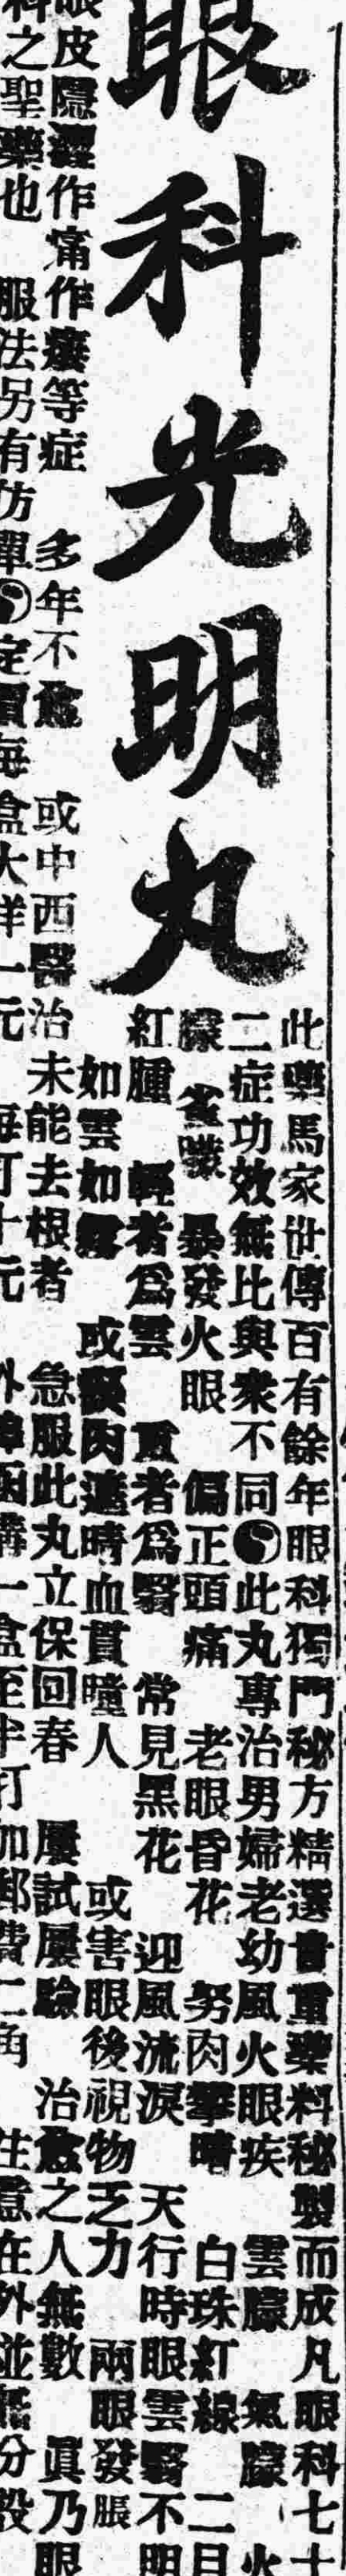 眼科光明丸
此藥馬家世傳百有餘年眼科獨門秘方精選貴重藥料秘製而成凡眼科七十
二症功效無比與衆不同此丸專治男婦老幼風火眼疾 雲朦 氣朦 火
朦 雀朦 暴發火眼 偏正頭痛 老眼昏花 努肉攀睛 白珠紅線 二目
紅腫 輕者爲雲 重者爲翳 常見黑花 迎風流淚 天行時眼雲翳不明
如雲如霧 或瘀肉遮睛血貫瞳人 或害眼後視物乏力 兩眼發脹
眼皮隱澀作痛作癢等症 多年不愈 或中西醫治未能去根者 急服此丸立保回春 屢試屢驗 治愈之人無數 眞乃眼
科之聖藥也 服法另有仿單 定價每盒大洋一元 每打十元 外埠函購一盒至半打加郵費二角 生意在外並無分設